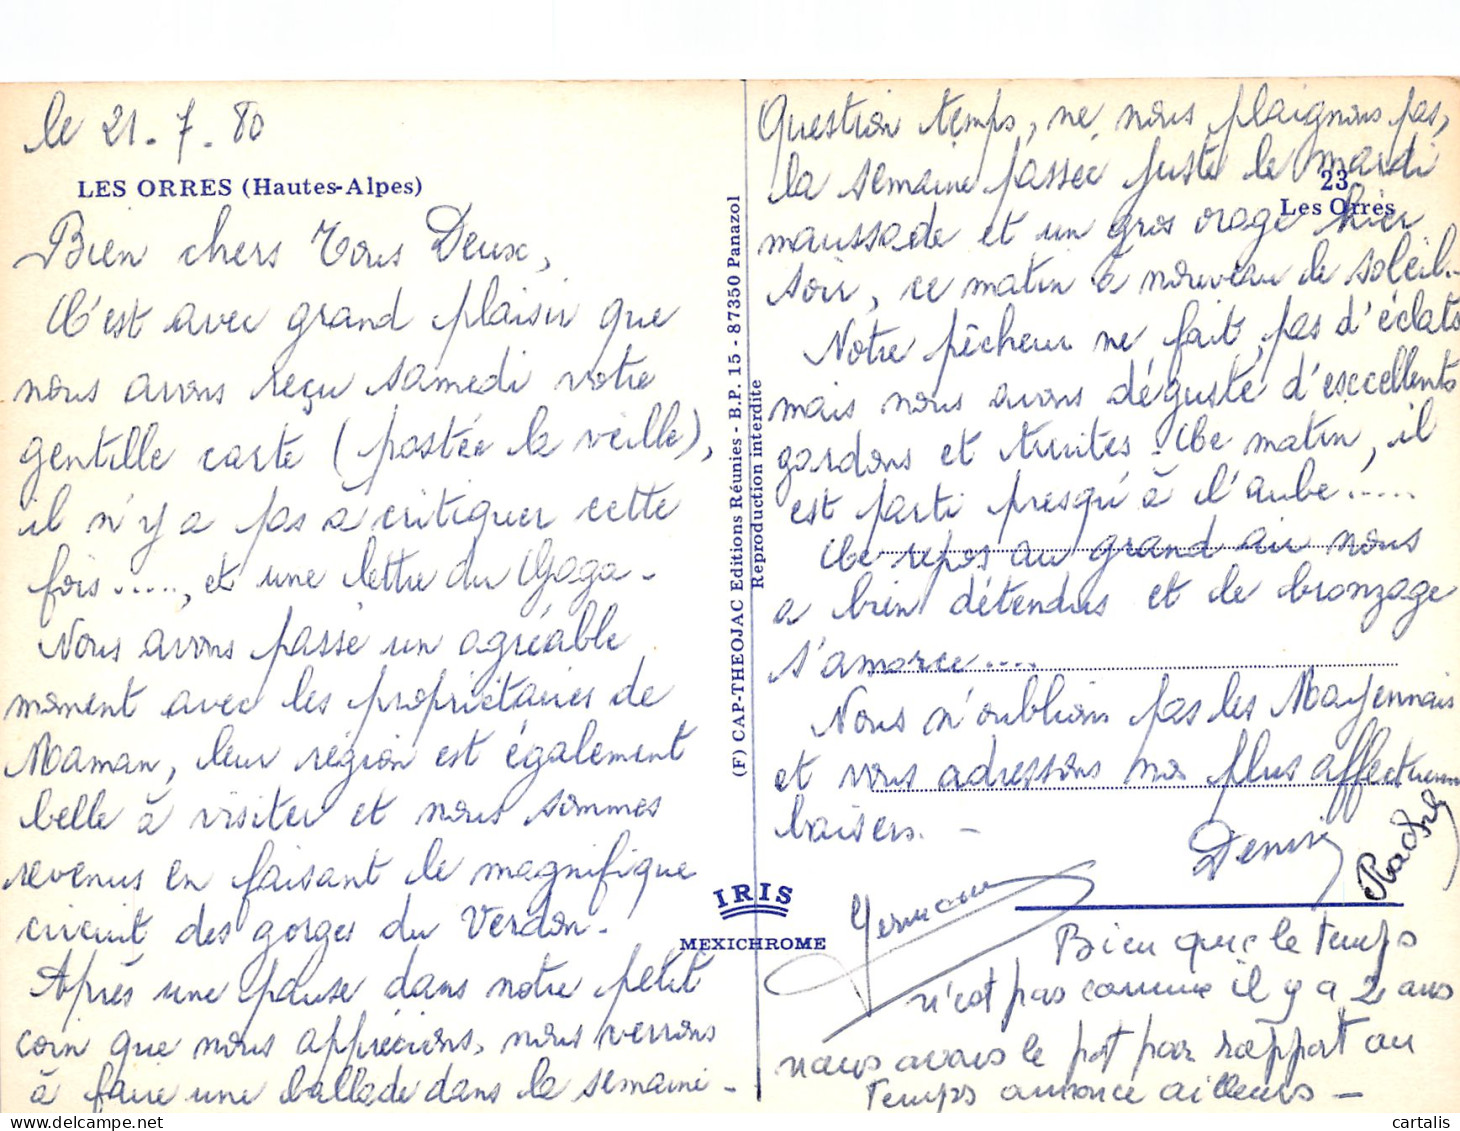 le 21.7.80
LES ORRES (Hautes-Alpes)
Bien chers Vous Deux,
C'est avec grand plaisir que
nous avons reçu samedi votre
gentille carte (postée la veille),
il n'y a pas à critiquer cette
fois....., et une lettre du Gaga.
Nous avons passé un agréable
moment avec les propriétaires de
Maman, leur région est également
belle à visiter et nous sommes
revenus en faisant le magnifique
circuit des gorges du Verdon.
Après une pause dans notre petit
coin que nous apprécions, nous verrons
à faire une ballade dans la semaine -
(F) CAP-THEOJAC Editions Réunies - B.P. 15 - 87350 Panazol
Reproduction interdite
IRIS
MEXICHROME
23
Les Orres
Question temps, ne nous plaignons pas,
la semaine passée juste le mardi
maussade et un gros orage hier
soir, ce matin à nouveau le soleil.
Notre pêcheur ne fait pas d'éclats
mais nous avons dégusté d'excellents
gardons et truites. Ce matin, il
est parti presqu'à l'aube.....
Le repos au grand air nous
a bien détendus et le bronzage
s'amorce....
Nous n'oublions pas les Mayennais
et vous adressons nos plus affectueux
baisers. -
Denise
Germaine
Bien que le temps
n'est pas comme il y a 2 ans
nous avons le pot par rapport au
temps annoncé ailleurs -